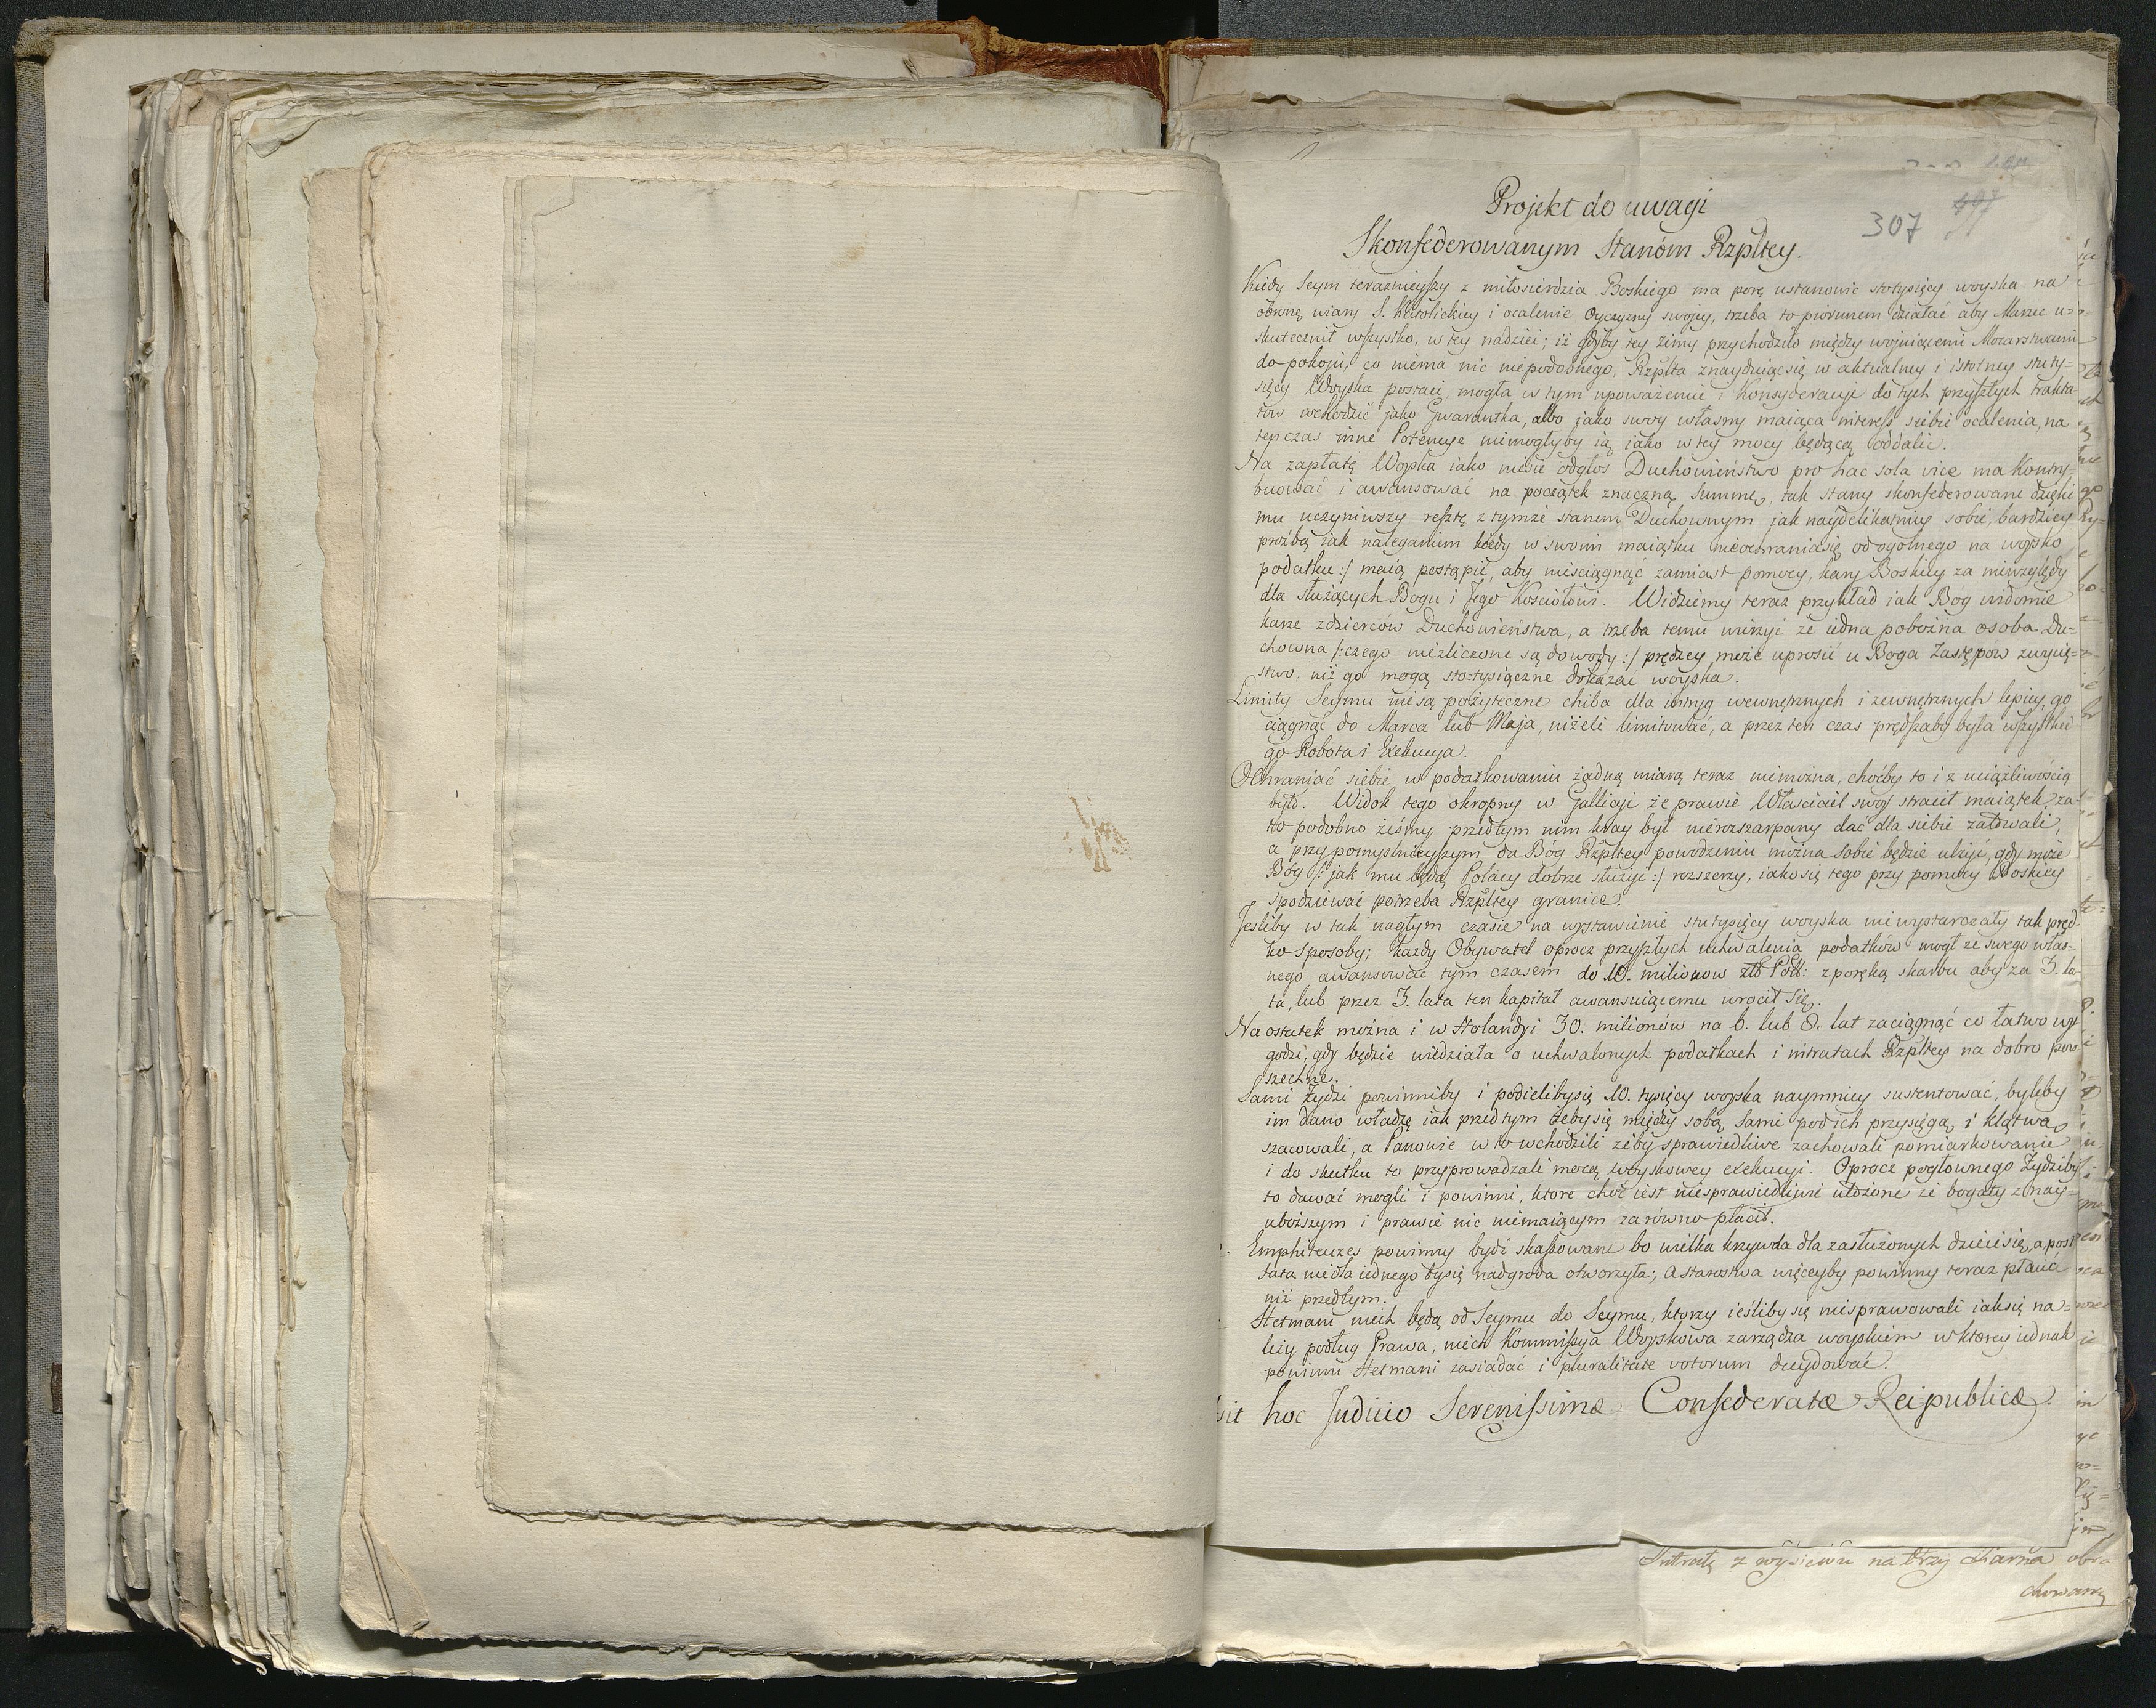 Projekt do uwagi
307 407
Skonfederowanym Stanóm Rzpltey.
Kiedy Seym teraznieyszy z miłosierdzia Boskiego ma porę ustanowic stotysięcy woyska na
obronę wiary S. Katolickiey i ocalenie Oyczyzny swojey, trzeba to piorunem działać aby Marzec u=
skutecznił wszystko, w tey nadziei; iż gdyby tey zimy przychodziło między wojuiącemi Mocarstwami
do pokoju, co niema nic niepodobnego, Rzplta znayduiąc się w aktualney i istotney stuty=
sięcy Woyska postaci mogła w tym upoważenie i Konsyderacyi do tych przyszłych trakta=
tow wchodzić jako Gwarantka, albo jako swoy własny maiąca interess siebie ocalenia, na
ten czas inne Potencye niemogłyby ią jako w tey mocy będącą oddalić.
Na zapłatę Woyska iako niesie odgłos Duchowieństwo pro hac sola vice ma Kontry=
buować i awansować na początek znaczną Summę, tak stany skonfederowane dzięki
mu uczyniwszy resztę z tymże stanem Duchownym jak naydelikatniey sobie, bardziey
proźbą jak naleganiem kiedy w swoim maiątku nieochraniasię od ogolnego na woysko
podatku :/ maią postąpić, aby nieściągnąć zamiast pomocy, kary Boskiey za niewzględy
dla służących Bogu i Jego Kościołowi. Widziemy teraz przykład iak Bog widomie
karze zdzierców Duchowieństwa, a trzeba temu wierzyć że iedna pobożna osoba Du=
chowna /: czego niezliczone są dowody :/ prędzey może uprosić u Boga Zastępow zwycię=
stwo, niż go mogą sto-tysiączne dokazać woyska.
Limity Seymu niesą pożyteczne chiba dla intryg wewnętrznych i zewnętrznych lepiey go
ciągnąć do Marca lub Maja, niżeli limitować, a przez ten czas prędszaby była wszystkie=
go Robota i Exekucya.
Ochraniać siebie w podatkowaniu żadną miarą teraz niemożna, choćby to i z uciążliwością
było. Widok tego okropny w Gallicyi że prawie Własciciel swoy stracił maiątek, za=
to podobno żeśmy przedtym nim kray był nierozszarpany dać dla siebie załowali,
a przy pomyslnieyszym da Bóg Rzpltey powodzeniu można sobie będzie ulżyć, gdy może
Bóg /: jak mu będą Polacy dobrze służyc :/ rozszerzy, iako się tego przy pomocy Boskiey
spodziewać potrzeba Rzpltey granice.
Jesliby w tak nagłym czasie na wystawienie stutysięcy woyska niewystarczały tak pręd=
ko sposoby; każdy Obywatel oprocz przyszłych uchwalenia podatków mogł ze swego włas=
nego awansować tym czasem do 10. milionow złł Poll: z poręką skarbu aby za 3. la=
ta, lub przez 3. lata ten kapitał awansuiącemu wrocił się.
Na ostatek można i w Holandyi 30. milionów na 6. lub 8. lat zaciągnąć co łatwo wy
godzi, gdy będzie wiedziała o uchwalonych podatkach i intratach Rzpltey na dobro pow=
szechne.
Sami Żydzi powinniby i podielibysię 10. tysięcy woyska naymniey sustentować, byleby
im dano władzę iak przedtym żeby się między sobą Sami pod ich przysięgą i klątwą
szacowali, a Panowie w to wchodzili żeby sprawiedliwe zachowali pomiarkowanie
i do skutku to przyprowadzali mocą woyskowey exekucyi. Oprocz pogłownego Żydziby
to dawać mogli i powinni, ktore choć iest niesprawiedliwie ułożone że bogaty z nay=
uboższym i prawie nic niemaiącym zarówno płacił.
Emphiteuzes powinny bydź skassowane bo wielka krzywda dla zasłużonych dzieie się, a pos
tata niedla iednego bysię nadgroda otworzyła; a starostwa więceyby powinny teraz płacić
niż przedtym.
Hetmani niech będą od Seymu do Seymu, ktorzy ieśliby się niesprawowali iak się na=
leży podług Prawa, niech Kommissya Woyskowa zarządza woyskiem w ktorey iednak
powinni Hetmani zasiadać i pluralitate votorum decydować.
sit hoc Judicio Serenissimæ Confederatæ Reipublicæ.
Intratę z wysiewu na trzy Ziarna obra
chowaną